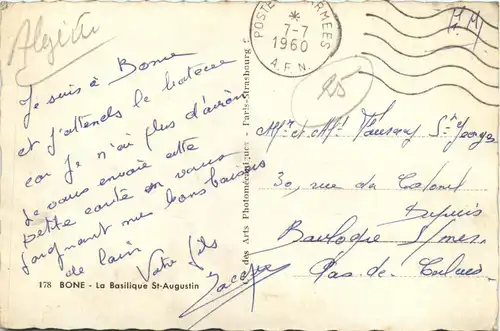 Algérie
Je suis à Bone
et j'attends le bateau
car je n'ai plus d'avion
Je vous envoie cette
petite carte en vous
joignant mes bons baisers
de loin
Votre fils
178 BONE - La Basilique St-Augustin
des Arts Photomécaniques - Paris-Strasbourg
POSTE ARMEES
*
7-7
1960
A.F.N.
F.M.
25
Mr et Mme St Georges
30, rue du Colonel
Dupuis
Boulogne s/mer
Pas-de-Calais